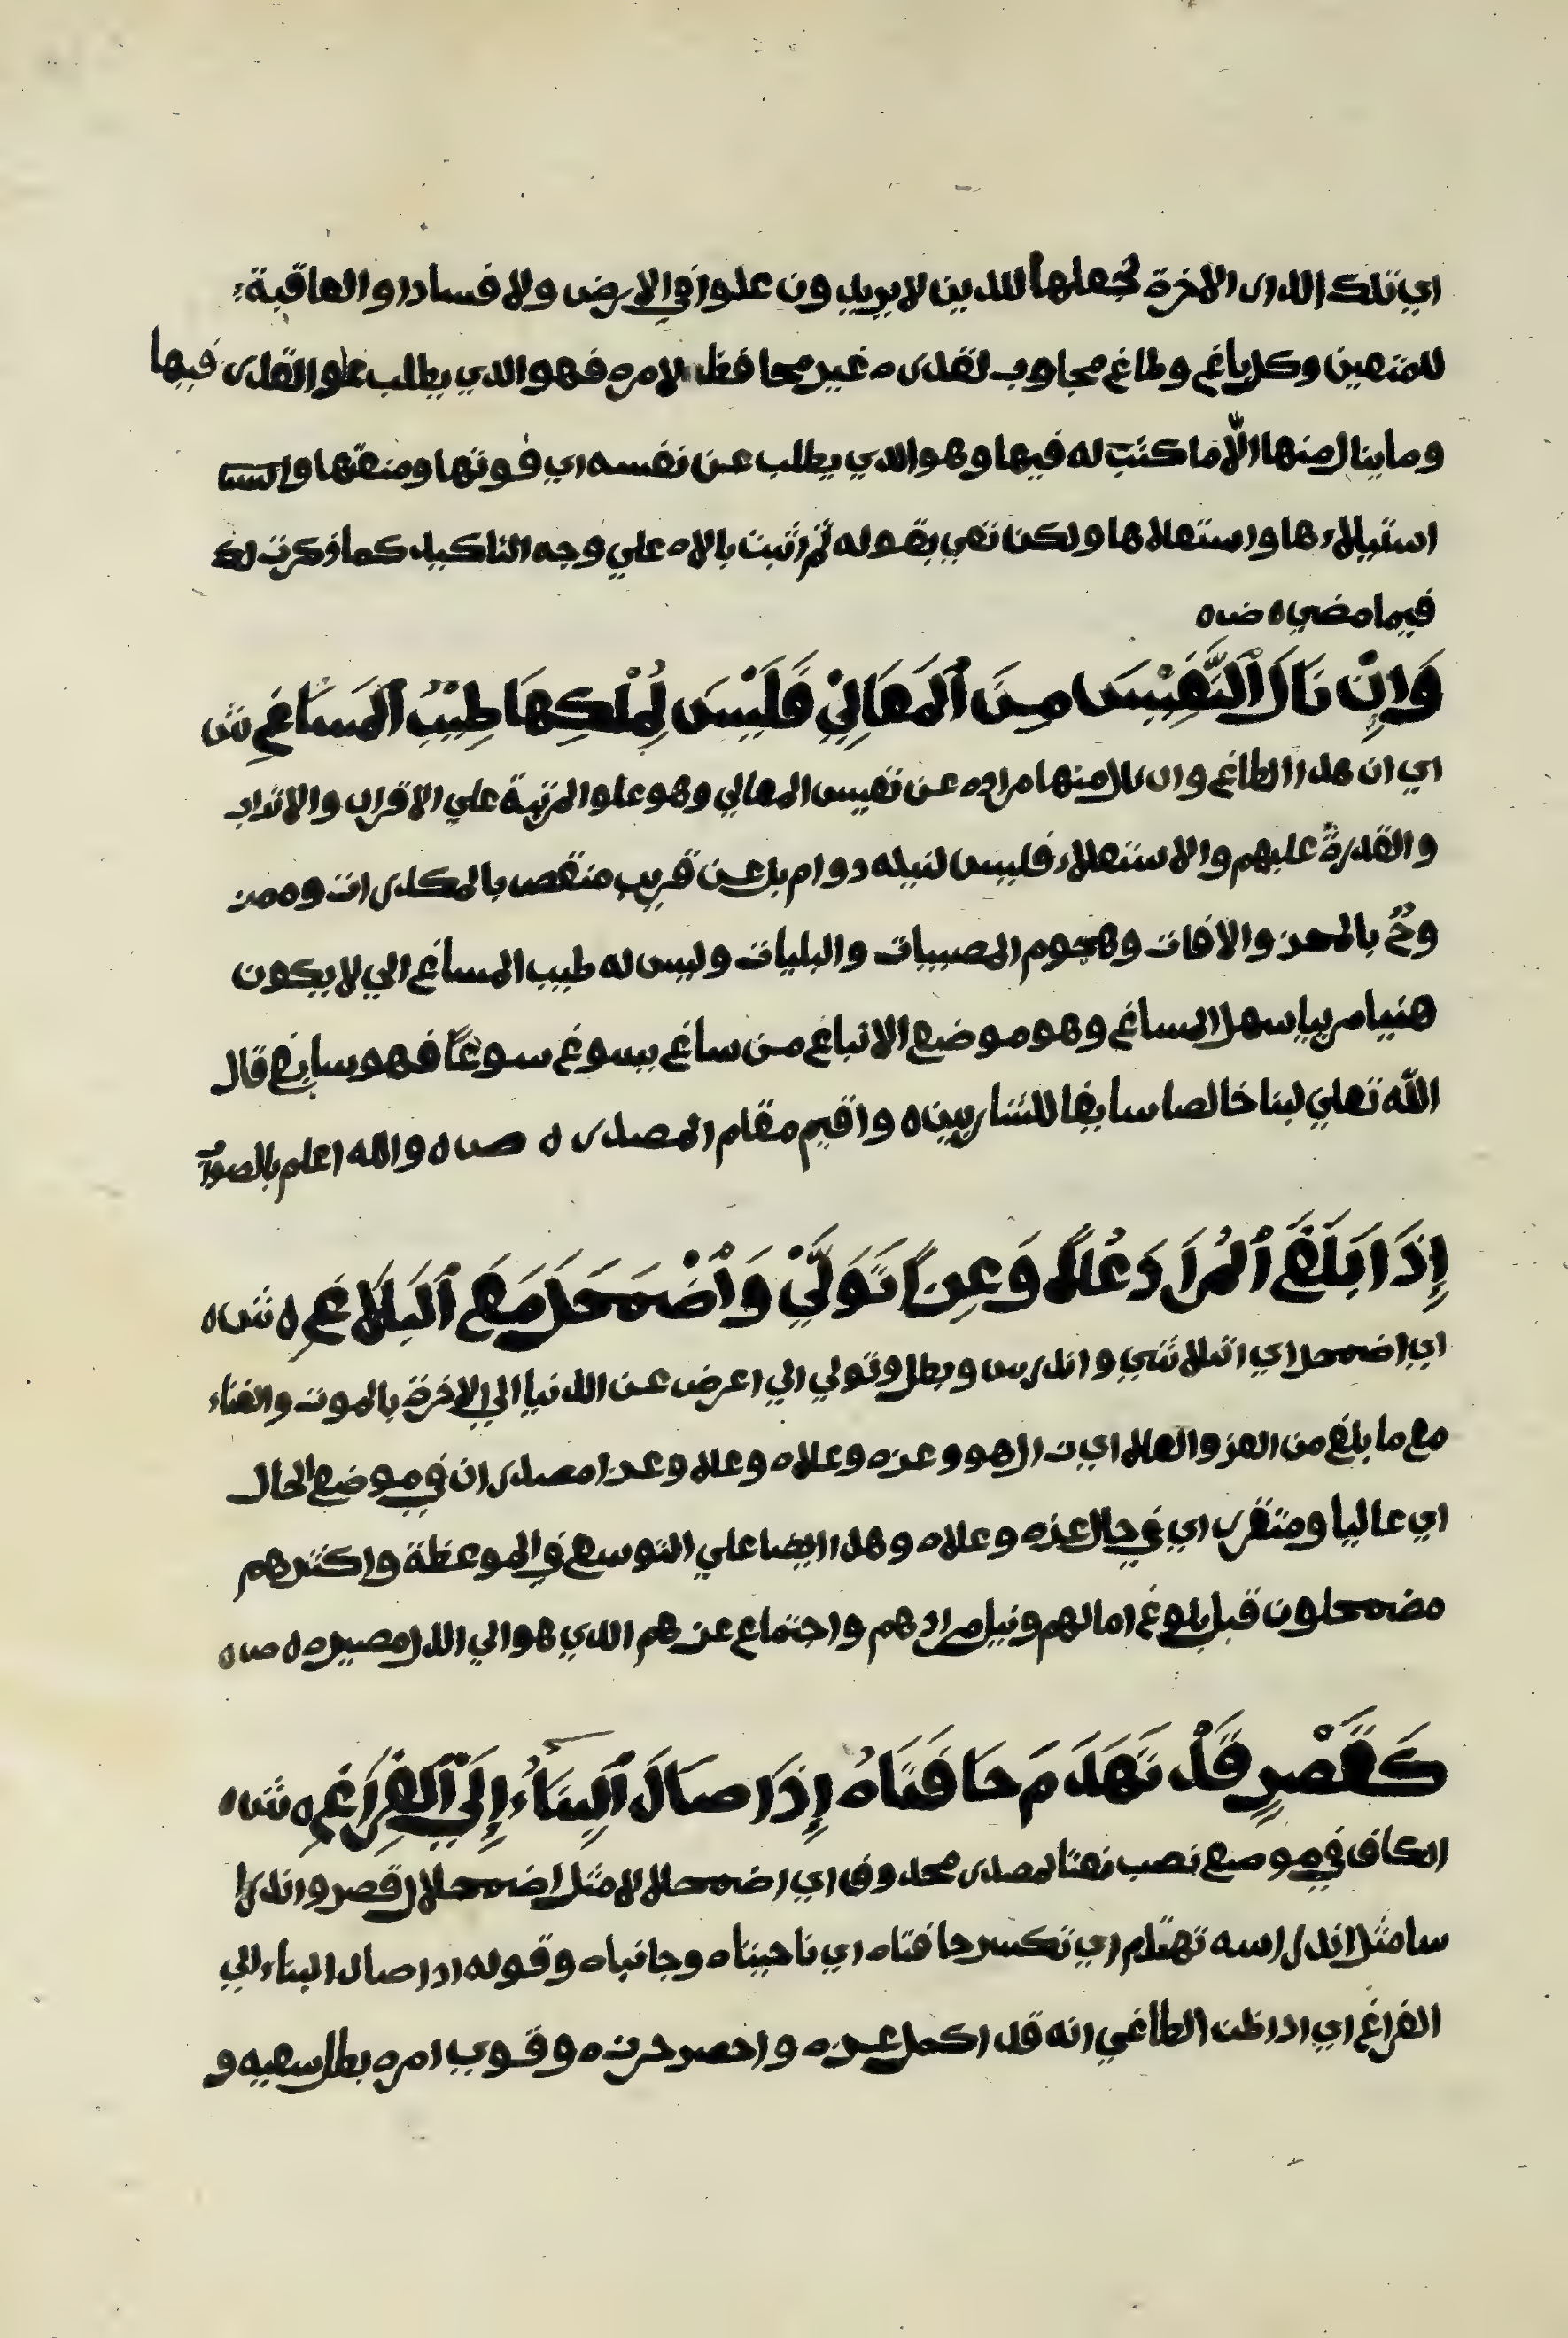 اي تلك الدار الاخرة نجعلها للذين لا يريدون علوا في الارض ولا فسادا والعاقبة
للمتقين وكل باغ وطاغ مجاوب لقدره غير محافظ لامره فهو الذي يطلب علو القدر فيها
وما ينال منها الّا ما كتبت له فيها وهو الذي يطلب عن نفسه اي فوتها ومنعتها و
استيلاءها واستعلاها ولكن نفي بقوله ثم اثبت بالاه علي وجه التاكيد كما ذكرت لك
فيما مضي ه ص ه
وَإِنْ نَالَ ٱلنَّفِيْسَ مِنَ ٱلمَعَالِيْ فَلَيْسَ لِمُلْكِهَا طِيْبُ ٱلمَسَاغِ ش
اي ان هذا الطاغ وان نال منها مراده عن نفيس المعالي وهو علو المرتبة علي الاقران والاتراب
والقدرة عليهم والاستعلاء فليس لنيله دوام بل عن قريب منغص بالمكدرات وممز
وج بالمحن والافات وهجوم المصيبات والبليات وليس له طيب المساغ الي لا يكون
هنيا مريا سهل المساغ وهو موضع الانباغ من ساغ يسوغ سوغًا فهو سايغ قال
اللّه تعلي لبنا خالصا سايغا للشاربين ه واقيم مقام المصدر ه ص ه والله اعلم بالصواب
إِذَا بَلَغَ ٱلمُرَادَ عُلاً وَعِزًا تَوَلَّيْ وَاْضْمَحَلَ مَعَ ٱلبَلَاغِ ه ش ه
اي اضمحل اي اتلاشي واندرس وبطل وتولي الي اعرض عن الدنيا الي الاخرة بالموت والفناء
مع ما بلغ من العز والعلا اي ن الهو وعزه وعلاه وعلا وعزا مصدران في موضع الحال
اي عاليا ومتعزر اي في حال عزه وعلاه وهذا ايضا علي التوسع في الموعظة واكثرهم
مضمحلون قبل بلوغ امالهم ونيل مرادهم واجتماع عزهم الذي هو الي الذل مصيره ه ص ه
كَقَصْرٍ قَدْ تَهَدَمَ حَافَتَاهُ إِذَا صَالَ ٱلبِنَآءُ إِلَيْ ٱلفِرَاغِ ه ش ه
الكاف في موضع نصب نعتا لمصدر محذوف اي اضمحلالا مثل اضمحلال قصر واندرا
سا مثل اندراسه تهدم اي تكسر حافتاه اي ناحيتاه وجانباه وقوله اذا صال البناء الي
الفراغ اي اذا ظن الطاغي انه قد اكمل عزه واحصر حرزه وقوي امره بطل سعيه و